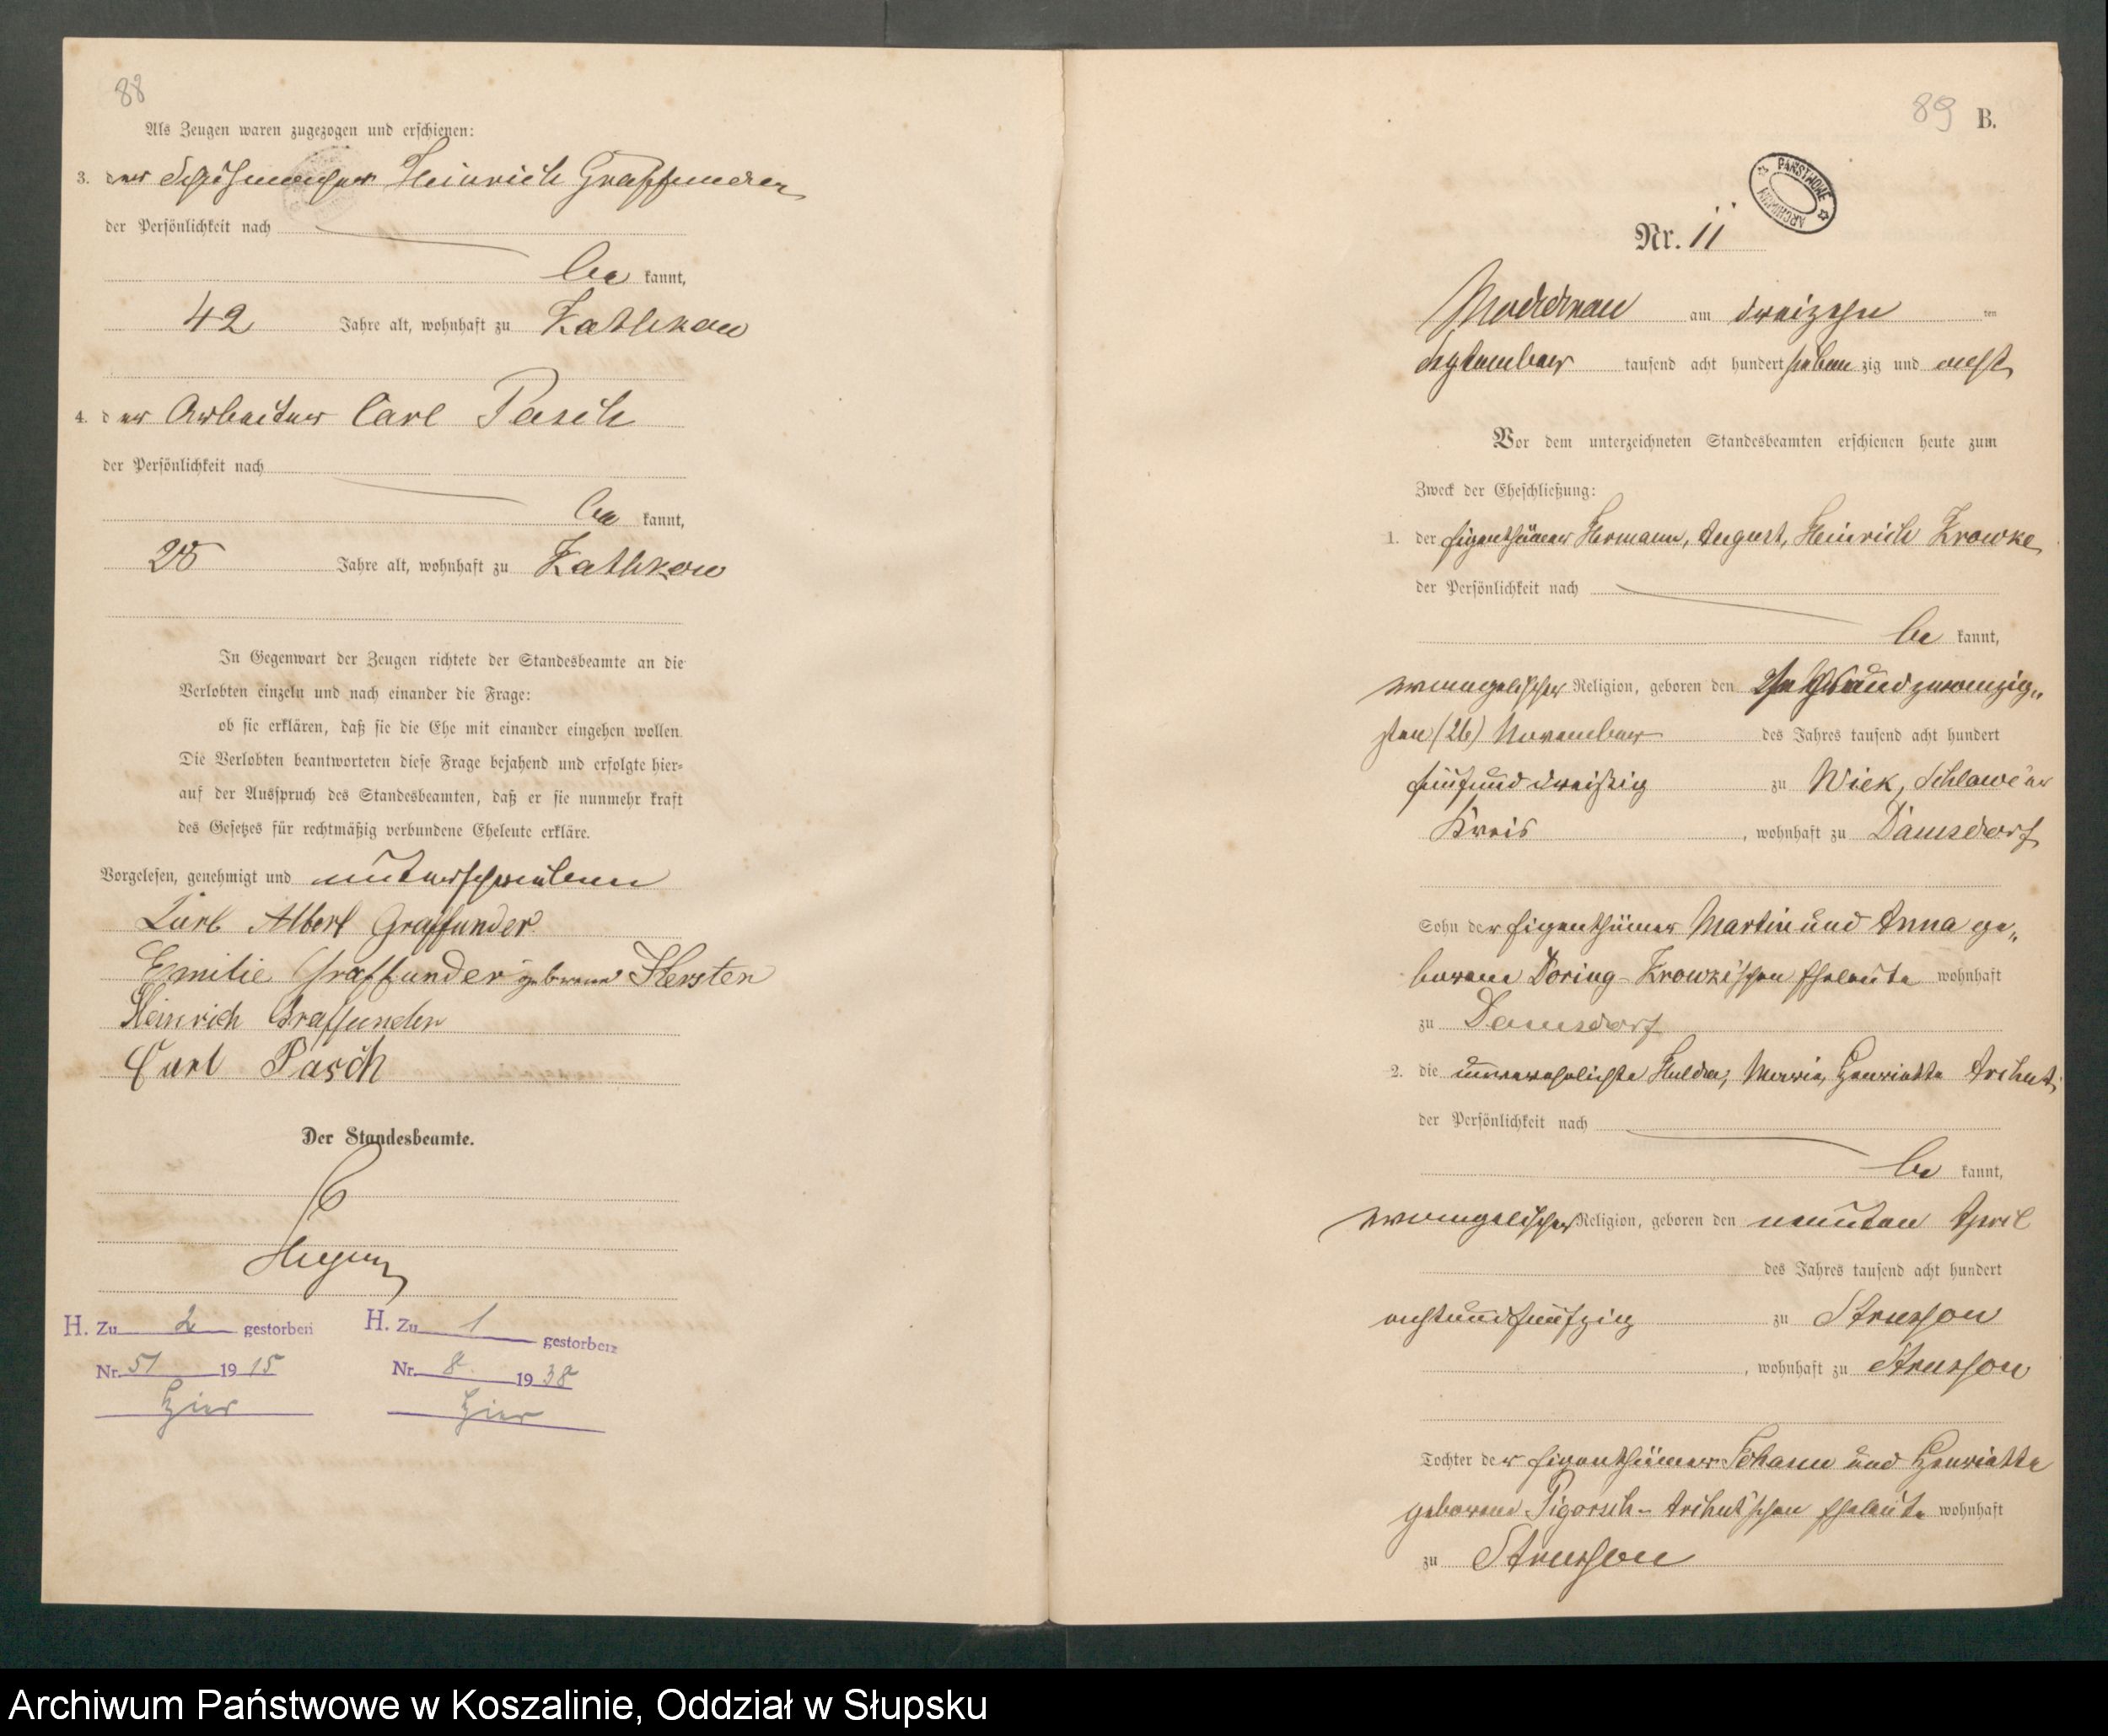 88
Als Zeugen waren zugezogen und erschienen:
3. der Schuhmacher Heinrich Graffunder
der Persönlichkeit nach
be kannt,
42 Jahre alt, wohnhaft zu Kathkow
4. der Arbeiter Carl Pasch
der Persönlichkeit nach
be kannt,
Jahre alt, wohnhaft zu Kathkow
In Gegenwart der Zeugen richtete der Standesbeamte an die
Verlobten einzeln und nach einander die Frage:
ob sie erklären, daß sie die Ehe mit einander eingehen wollen.
Die Verlobten beantworteten diese Frage bejahend und erfolgte hier-
auf der Ausspruch des Standesbeamten, daß er sie nunmehr kraft
des Gesetzes für rechtmäßig verbundene Eheleute erkläre.
Vorgelesen, genehmigt und unterschrieben
Carl Albert Graffunder
Emilie Graffunder geborene Kersten
Heinrich Graffunder
Carl Pasch
Der Standesbeamte.
H. Zu 2 gestorben
Nr. 51 1915
hier
H. Zu 1 gestorben
Nr. 8 1938
hier
89 B.
PAŃSTWOWE ARCHIWUM
Nr. 11
Moddrow am dreizehn ten
September tausend acht hundert sieben zig und acht
Vor dem unterzeichneten Standesbeamten erschienen heute zum
Zweck der Eheschließung:
1. der Eigenthümer Hermann, August, Heinrich Krowke
der Persönlichkeit nach
be kannt,
evangelischer Religion, geboren den Sechsundzwanzig„
sten (26) November des Jahres tausend acht hundert
fünfunddreißig zu Wiek, Schlawe'er
Kreis, wohnhaft zu Damsdorf
Sohn der Eigenthümer Martin und Anna ge„
borene Döring-Krowkischen Eheleute wohnhaft
zu Damsdorf
2. die unverehelichte Hulda, Maria, Henriette Archut,
der Persönlichkeit nach
be kannt,
evangelischer Religion, geboren den neunten April
des Jahres tausend acht hundert
achtundfünfzig zu Strussow
, wohnhaft zu Strussow
Tochter der Eigenthümer Johann und Henriette
geborene Pigorsch-Archut'schen Eheleute wohnhaft
zu Strussow
Archiwum Państwowe w Koszalinie, Oddział w Słupsku